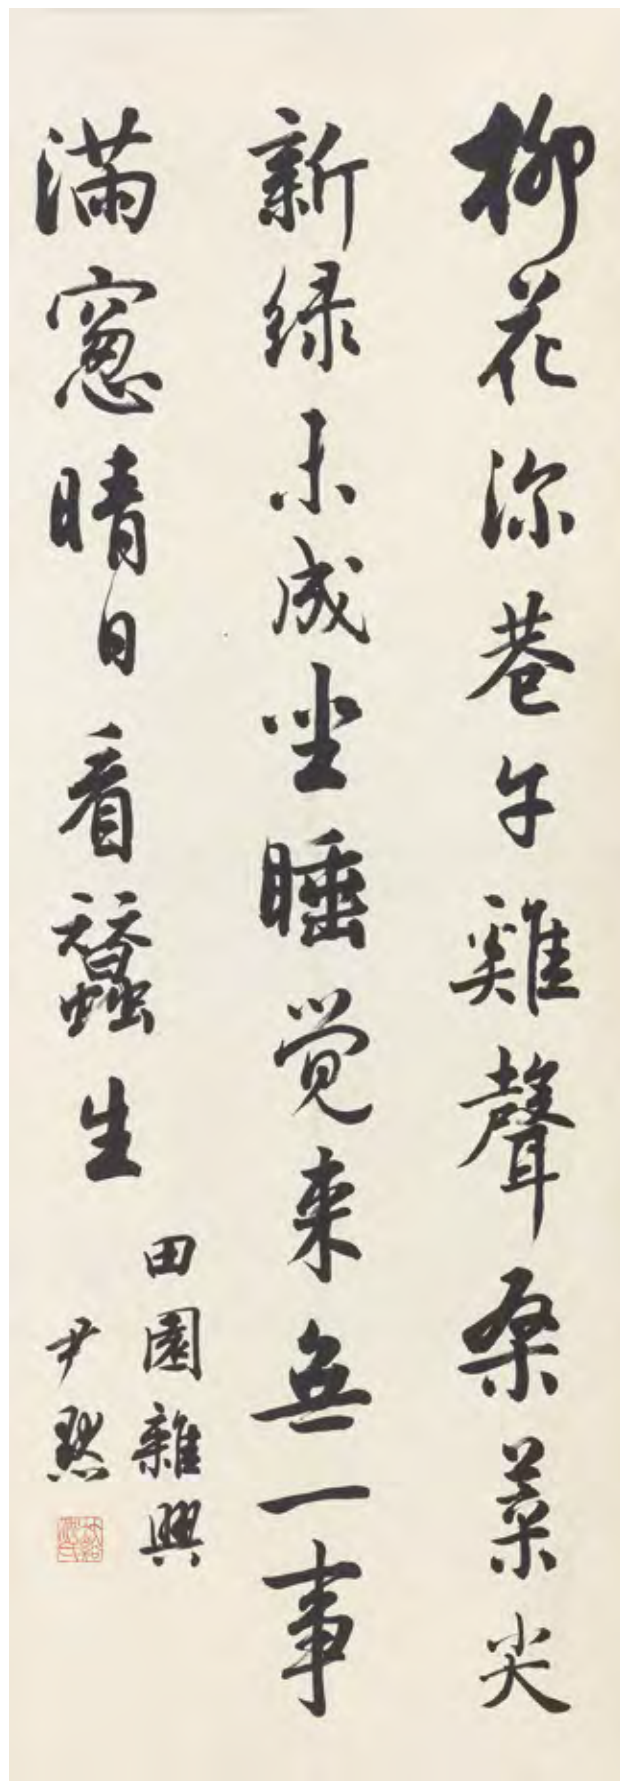 柳花深巷午雞聲桑菜尖
新绿未成坐睡觉来無一事
滿窻晴日看蠶生
田園雜興
尹默